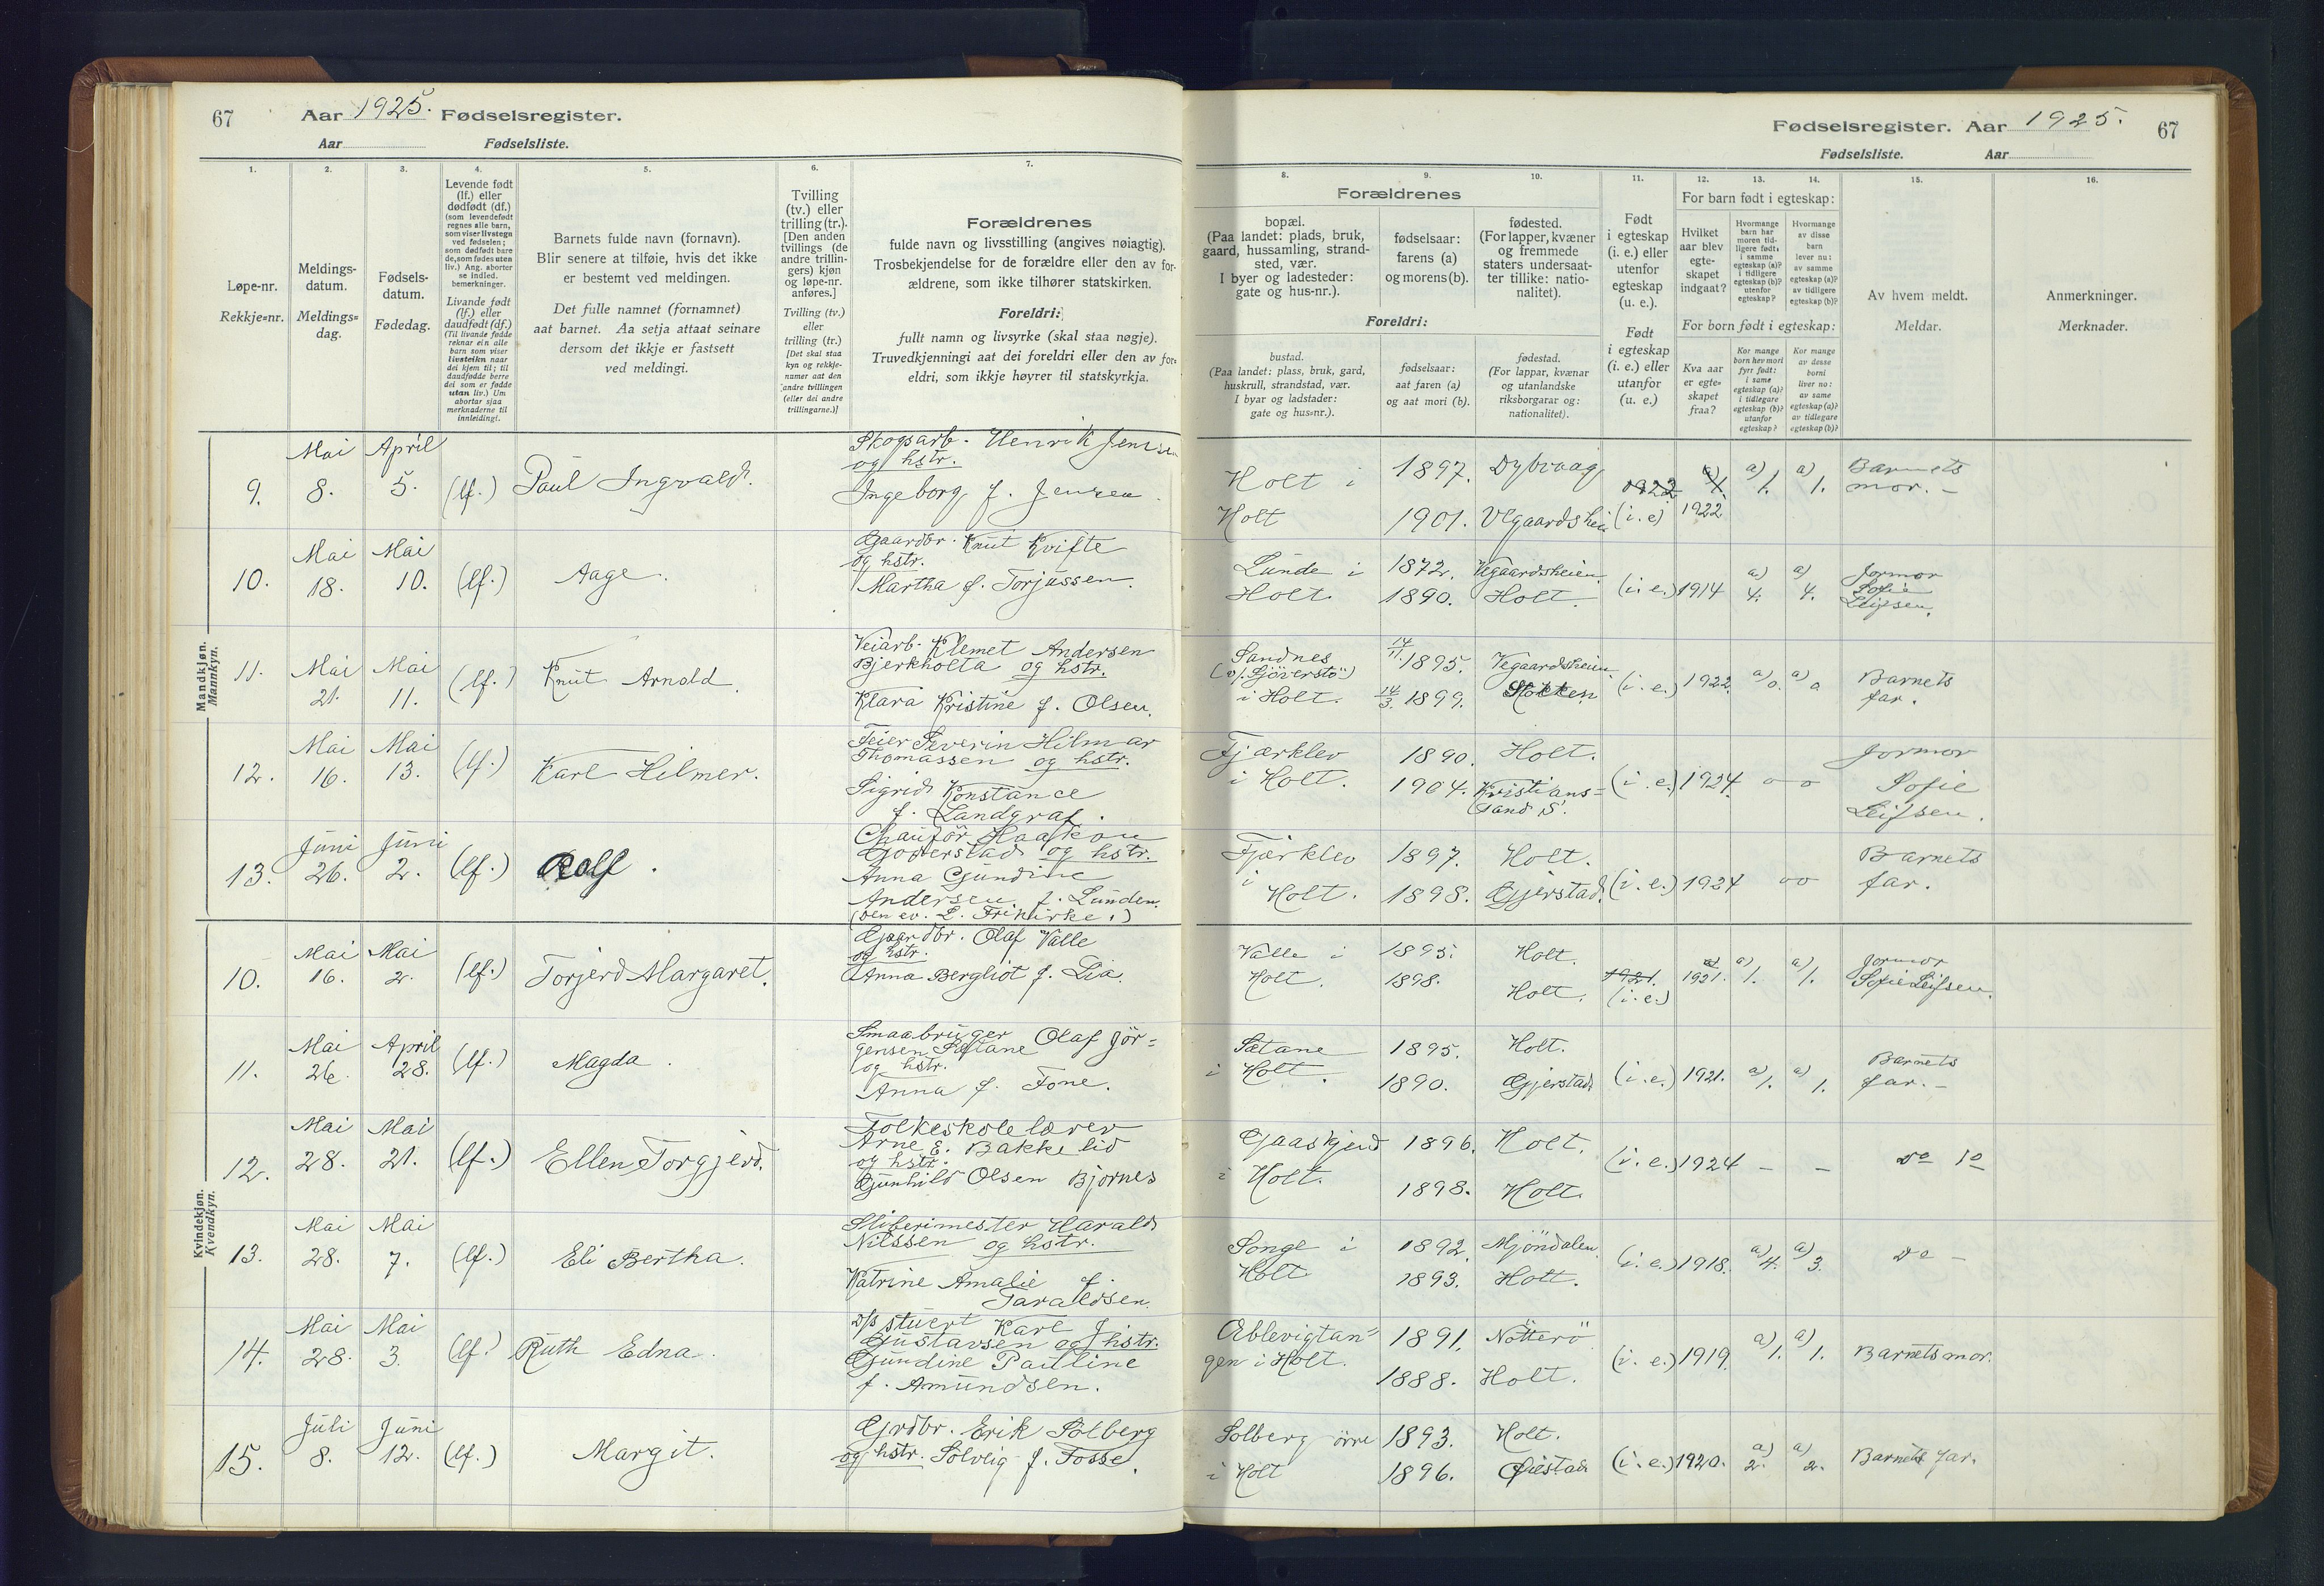 67 Aar 1925. Fødselsregister.
Aar Fødselsliste.
1. 2. 3. 4. 5. 6. 7.
Løpe-nr.
Rekkje=nr.
Meldings-
datum.
Meldings=
dag.
Fødsels-
datum.
Fødedag.
Levende født
(lf.) eller
dødfødt (df.)
(som levendefødt
regnes alle barn,
som viser livstegn
ved fødselen;
som dødfødt bare
de, som fødes uten
liv.) Ang. aborter
se indled.
bemerkninger.
Livande født
(lf.) eller
daudfødt (df.)
(Til livande fødde
reknar ein alle
barn som viser
livsteikn naar
dei kjem til; til
daudfødde berre
dei som er fødde
utan liv.) Um
abortar sjaa
merknaderne til
innleidingi.
Barnets fulde navn (fornavn).
Blir senere at tilføie, hvis det ikke
er bestemt ved meldingen.
Det fulle namnet (fornamnet)
aat barnet. Aa setja attaat seinare
dersom det ikkje er fastsett
ved meldingi.
Tvilling
(tv.) eller
trilling (tr.).
[Den anden
tvillings (de
andre trillin-
gers) kjøn
og løpe-nr.
anføres.]
Tvilling (tv.)
eller
trilling (tr.)
[Det skal staa
kyn og rekkje-
numer aat den
andre tvillingen
(eller dei andre
trillingarne.)]
Forældrenes
fulde navn og livsstilling (angives nøiagtig).
Trosbekjendelse for de forældre eller den av for-
ældrene, som ikke tilhører statskirken.
Foreldri:
fullt namn og livsyrke (skal staa nøgje).
Truvedkjenningi aat dei foreldri eller den av for-
eldri, som ikkje høyrer til statskyrkja.
Mandkjøn.
Mannkyn.
9. Mai 8. April 5. (lf.) Paul Ingvald.
Skogsarb. Henrik Jensen
og hstr.
Ingeborg f. Jensen.
10. Mai 18. Mai 10. (lf.) Aage.
Gaardbr. Knut Kvifte
og hstr.
Martha f. Torjussen.
11. Mai 21. Mai 11. (lf.) Knut Arnold.
Veiarb. Klemet Andersen
Bjerkholta og hstr.
Klara Kristine f. Olsen.
12. Mai 16. Mai 13. (lf.) Karl Hilmer.
Feier Severin Hilmar
Thomassen og hstr.
Sigrid Konstance
f. Landgraf.
13. Juni 26. Juni 2. (lf.) Rolf.
Chauför Haakon
Goderstad og hstr.
Anna Gundine
Andersen f. Lunden.
(Den ev. L. Frikirke.)
Kvindekjøn.
Kvendkyn.
10. Mai 16. Mai 2. (lf.) Torjerd Margaret.
Gaardbr. Olaf Valle
og hstr.
Anna Bergliot f. Lia.
11. Mai 26. April 28. (lf.) Magda.
Smaabruger Olaf Jör=
gensen Sætane
og hstr.
Anna f. Fone.
12. Mai 28. Mai 21. (lf.) Ellen Torgjerd.
Folkeskolelærer
Arne E. Bakkelid
og hstr.
Gunhild Olsen Bjornes
13. Mai 28. Mai 7. (lf.) Eli Bertha.
Sliberimester Harald
Nilssen og hstr.
Katrine Amalie f.
Taraldsen.
14. Mai 28. Mai 3. (lf.) Ruth Edna.
D/s stuert Karl J.
Gustavsen og hstr.
Gundine Pauline
f. Amundsen.
15. Juli 8. Juni 12. (lf.) Margit.
Grdbr. Erik Solberg
og hstr. Solveig f. Fosse.
Fødselsregister. Aar 1925. 67
Fødselsliste. Aar
8. 9. 10. 11. 12. 13. 14. 15. 16.
Forældrenes
bopæl.
(Paa landet: plads, bruk,
gaard, hussamling, strand-
sted, vær.
I byer og ladesteder:
gate og hus-nr.).
fødselsaar:
farens (a)
og morens (b).
fødested.
(For lapper, kvæner
og fremmede
staters undersaat-
ter tillike: natio-
nalitet).
Foreldri:
bustad.
(Paa landet: plass, bruk, gard,
huskrull, strandstad, vær.
I byar og ladstader:
gate og hus=nr.).
fødselsaar:
aat faren (a)
og aat mori (b).
fødestad.
(For lappar, kvænar
og utanlandske
riksborgarar og:
nationalitet).
Født
i egteskap
(i. e.) eller
utenfor
egteskap
(u. e.).
Født
i egteskap
(i. e.) eller
utanfor
(u. e.)
For barn født i egteskap:
Hvilket
aar blev
egte-
skapet
indgaat?
Hvormange
barn har
moren tid-
ligere født:
i samme
egteskap (a)?
i tidligere
egteskap (b)?
utenfor
egteskap?
Hvormange
av disse
barn
lever nu:
av samme
egteskap (a)?
av tidligere
egteskap (b)?
For born født i egteskap:
Kva aar
er egte=
skapet
fraa?
Kor mange
born hev mori
fyrr født:
i same
egteskap (a)?
i tidlegare
egteskap (b)?
utanfor
egteskap?
Kor mange
av desse
borni
liver no:
av same
egteskap (a)?
av tidlegare
egteskap (b)?
Av hvem meldt.
Meldar.
Anmerkninger.
Merknader.
Holt i 1897. Dybvaag 1922 a) 1. a) 1. a) 1. Barnets
Holt 1901. Vegaardshei (i. e) 1922 mor. –
Lunde i 1872. Vegaardsheien. (i. e.) 1914 a) 4. a) 4. Jormor
Holt. 1890. Holt. Sofie
Leifsen.
Sandnes 14/11 1895. Vegaardsheien. (i. e.) 1922. a) 0. a) 0 Barnets
(v/ Sjöverstö) far.
i Holt. 14/3. 1899. Stokken
Fjærklev 1890. Holt. (i. e.) 1924. o o Jormor
i Holt. 1904. Kristians= Sofie
sand S. Leifsen.
Fjærklev 1897. Holt. (i. e.) 1924 o o Barnets
i Holt. 1898. Gjerstad. far.
Valle i 1895. Holt. 1921. 1921. a) 1. a) 1. Jormor
Holt. 1898. Holt. (i. e.) Sofie Leifsen.
Sætane 1895. Holt. (i. e.) 1921. a) 1. a) 1. Barnets
i Holt. 1890. Gjerstad far. –
Gaaskjerd 1896. Holt. (i. e.) 1924 – – Do do
i Holt. 1898. Holt.
Songe i 1892. Mjöndalen. (i. e.) 1918. a) 4. a) 3. Do –
Holt 1893. Holt.
Æblevigtan= 1891. Nötterö (i. e.) 1919. a) 1. a) 1. Barnets mor.
gen i Holt. 1888. Holt.
Solberg örre 1893. Holt. (i. e.) 1920. a) 2. a) 2. Barnets far.
i Holt 1896. Øiestad